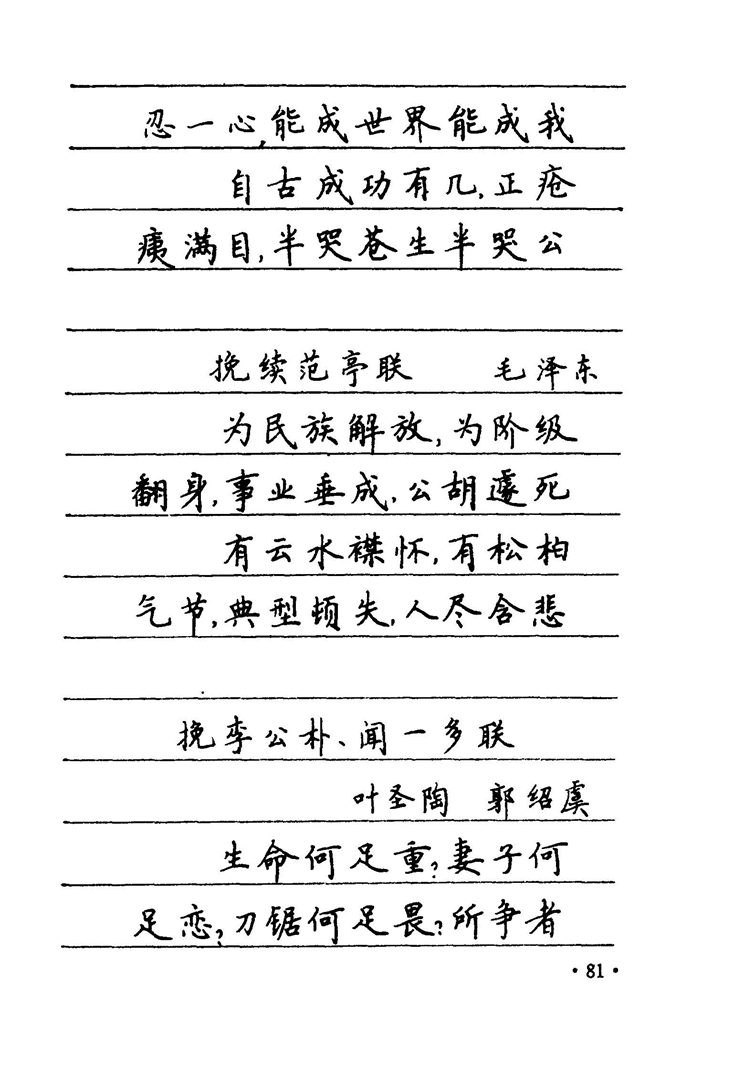 忍一心,能成世界能成我
自古成功有几,正疮
痍满目,半哭苍生半哭公
挽续范亭联 毛泽东
为民族解放,为阶级
翻身,事业垂成,公胡遽死
有云水襟怀,有松柏
气节,典型顿失,人尽含悲
挽李公朴、闻一多联
叶圣陶 郭绍虞
生命何足重?妻子何
足恋?刀锯何足畏?所争者
·81·